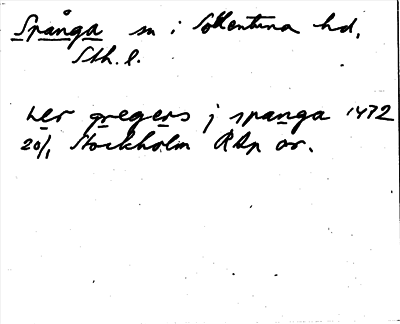 Spånga sn i Sollentuna hd,
Sth. l.
her gregers j spanga 1472
20/1 Stockholm RAp or.